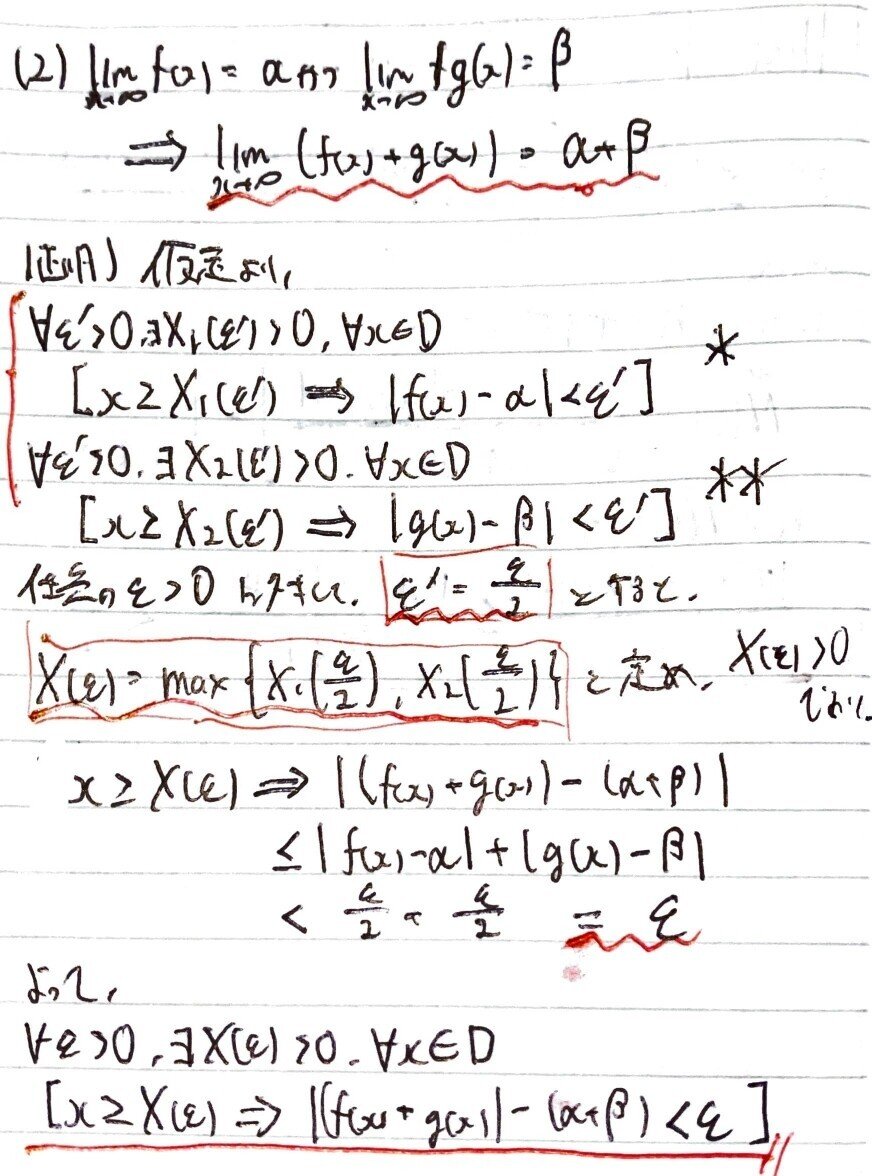 (2) lim_{x→∞} f(x) = α かつ lim_{x→∞} g(x) = β
⇒ lim_{x→∞} (f(x) + g(x)) = α + β
証明) 仮定より,
∀ε'>0, ∃X₁(ε')>0, ∀x∈D
[x ≥ X₁(ε') ⇒ |f(x) - α| < ε'] *
∀ε'>0. ∃X₂(ε')>0. ∀x∈D
[x ≥ X₂(ε') ⇒ |g(x) - β| < ε'] **
任意の ε>0 に対して. ε' = ε/2 とすると.
X(ε) = max {X₁(ε/2), X₂(ε/2)} と定め, X(ε)>0
であり.
x ≥ X(ε) ⇒ |(f(x) + g(x)) - (α + β)|
≤ |f(x) - α| + |g(x) - β|
< ε/2 + ε/2 = ε
よって,
∀ε>0, ∃X(ε)>0. ∀x∈D
[x ≥ X(ε) ⇒ |(f(x) + g(x)| - (α + β) < ε]